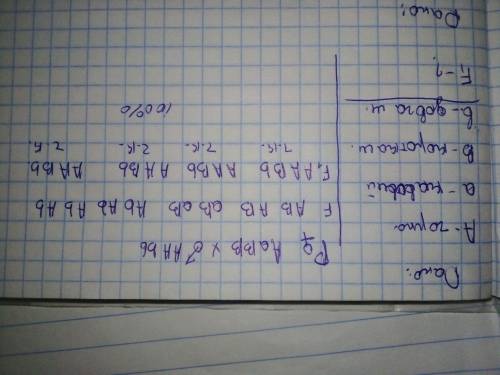 Дано:
А - чорна
а - кавовий
В - коротка ш.
в - довга ш.
F₁ - ?
P ♀ AaBB × ♂ AAbb
F AB AB aB aB Ab Ab Ab Ab
F₁ AABb AABb AABb AABb
ч.к. ч.к. ч.к. ч.к.
100%
Дано: